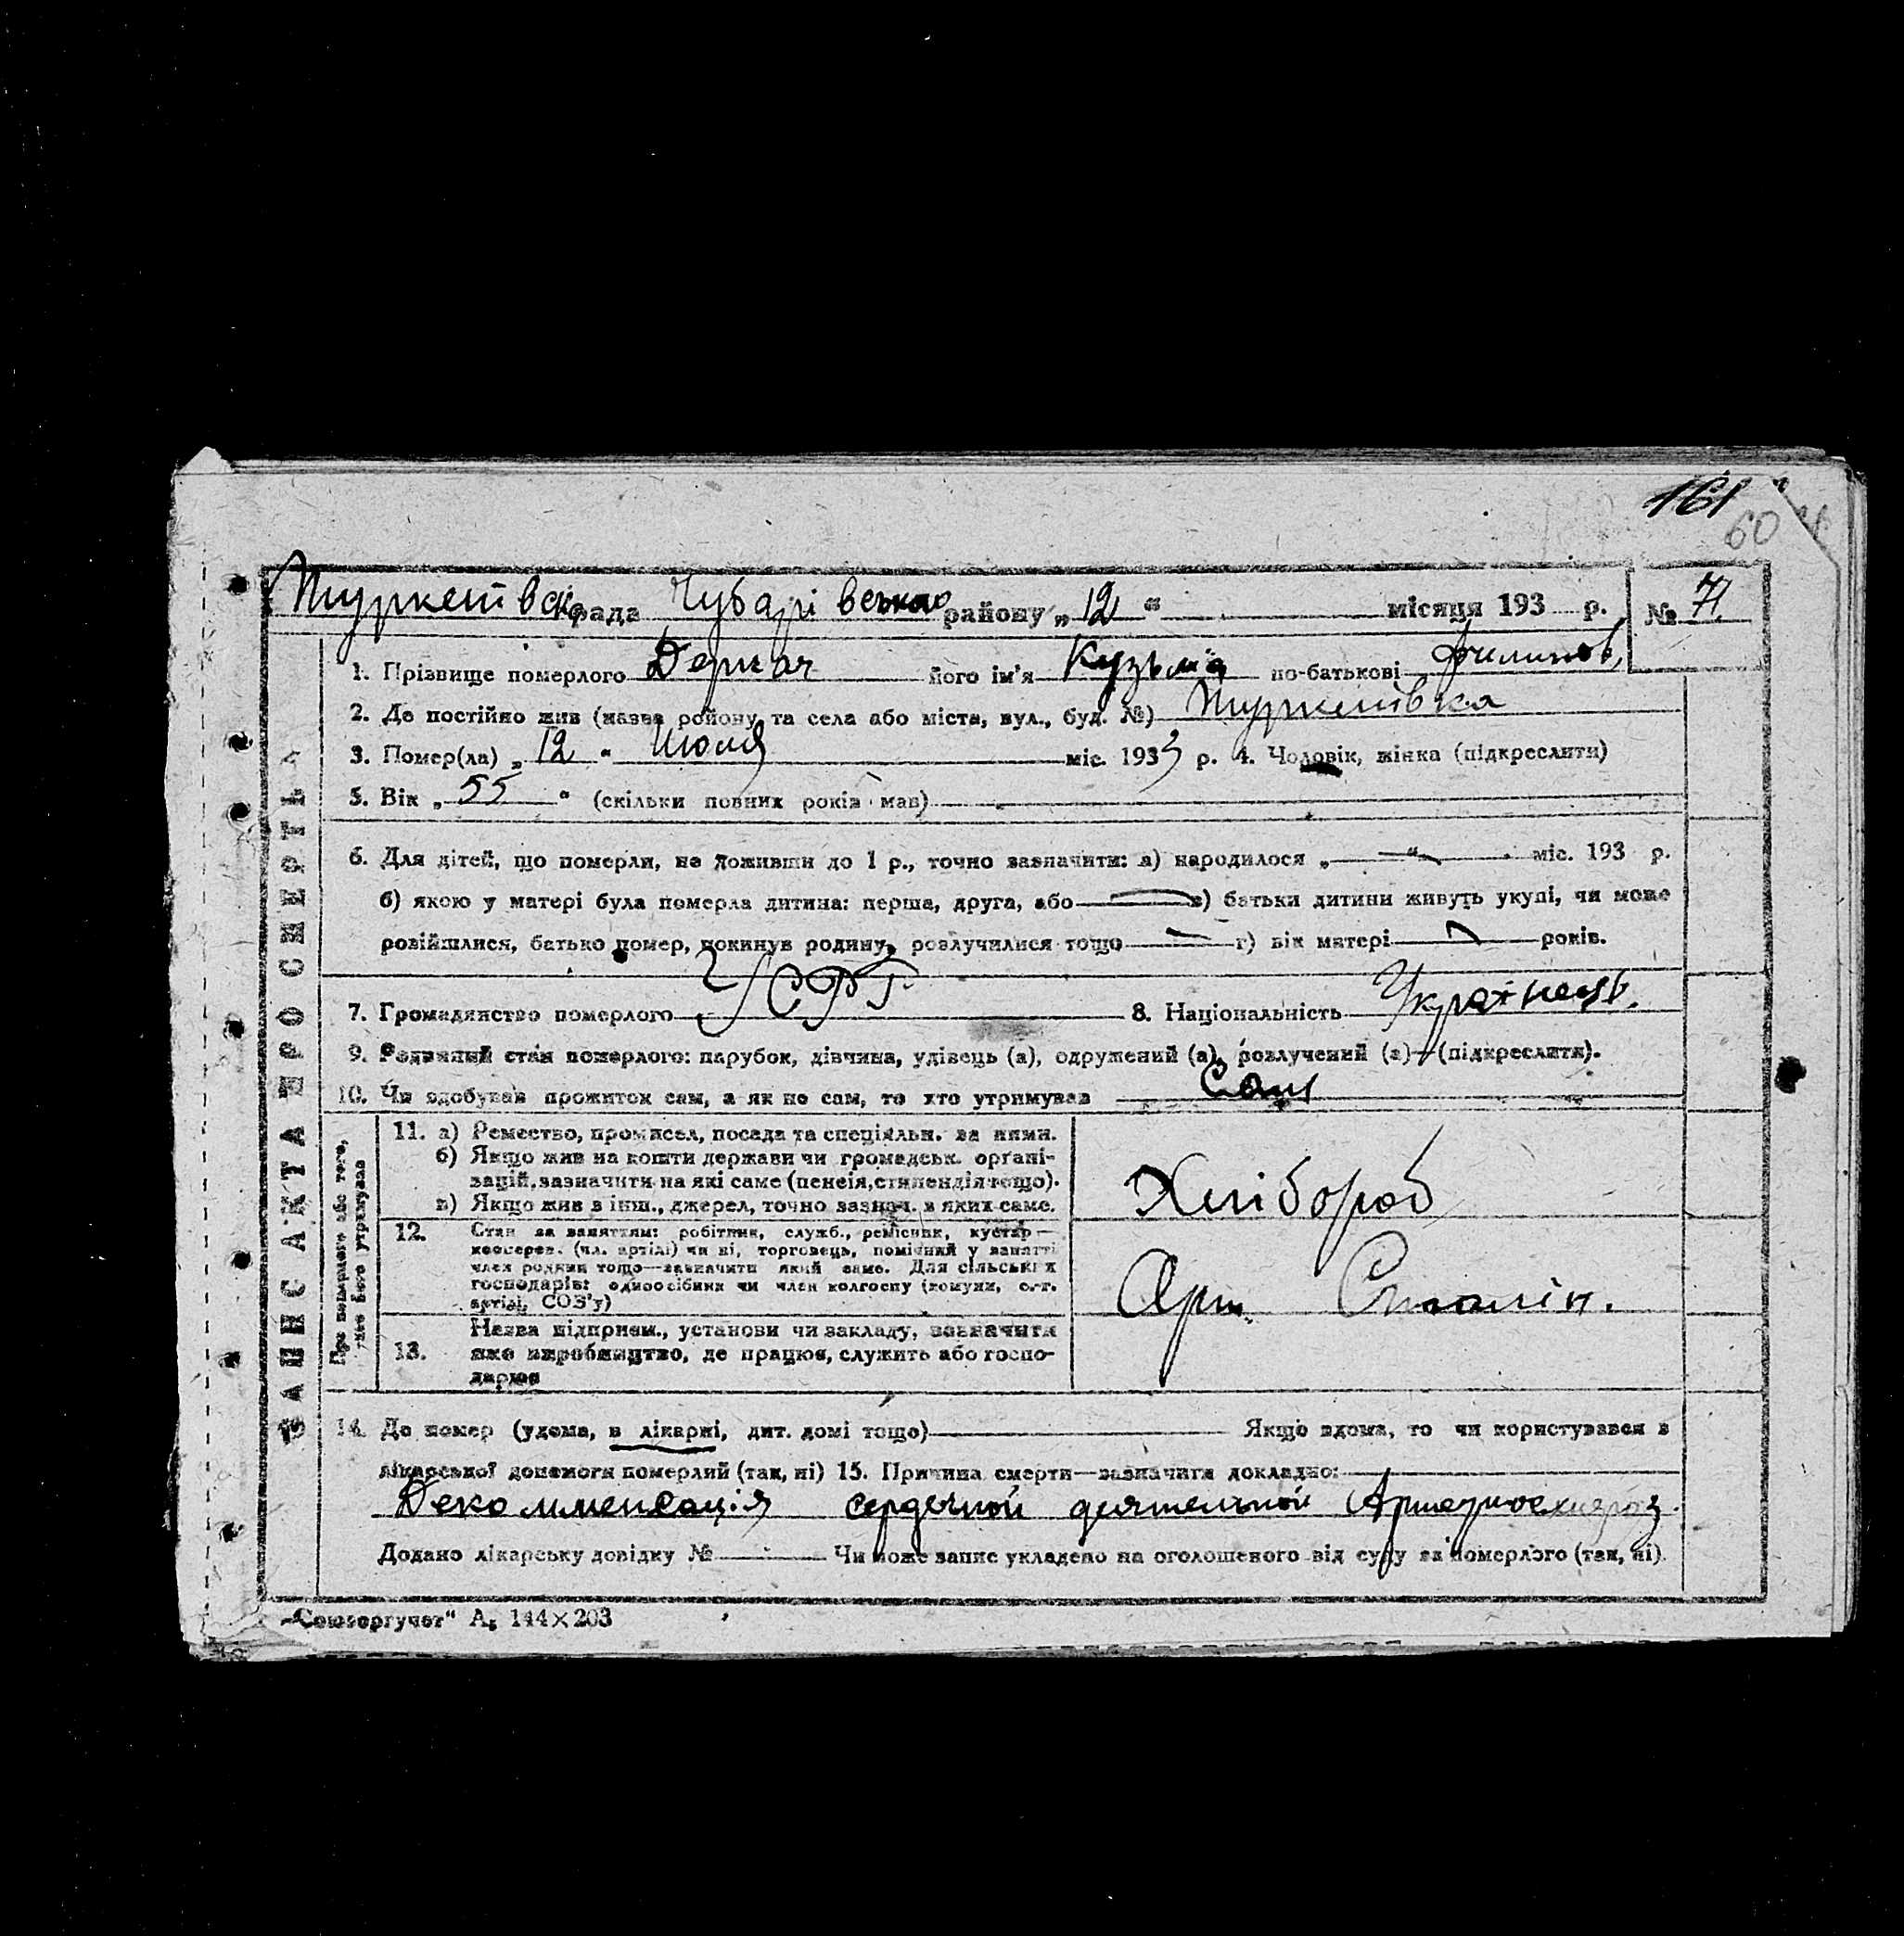 161
60
Туркенівська рада Чубарівського району „ 12 “ місяця 193 р. № 71
1. Прізвище померлого Деркач його ім'я Кузьма по-батькові Филипов,
2. Де постійно жив (назва району та села або міста, вул., буд. №) Туркенівка
3. Помер(ла) „ 12 “ Июля міс. 1933 р. 4. Чоловік, жінка (підкреслити)
5. Вік „ 55 “ (скільки повних років мав)
6. Для дітей, що померли, не доживши до 1 р., точно зазначити: а) народилося „ “ міс. 193 р.
б) якою у матері була померла дитина: перша, друга, або в) батьки дитини живуть укупі, чи може
розійшлися, батько помер, покинув родину, розлучилися тощо г) вік матері років.
7. Громадянство померлого УСРР 8. Національність Українец.
9. Родинний стан померлого: парубок, дівчина, удівець (а), одружений (а), розлучений (а)—(підкреслити).
10. Чи здобував прожиток сам, а як не сам, то хто утримував Сам
ЗАПИС АКТА ПРО СМЕРТЬ
Про померлого або того, хто його утримував
11. а) Ремество, промисел, посада та спеціяльн. за ними.
б) Якщо жив на кошти держави чи громадськ. органі-
зацій, зазначити на які саме (пенсія, стипендія тощо).
в) Якщо жив з інш., джерел, точно зазнач. з яких саме.
Хлібороб
12. Стан за заняттям: робітник, служб., ремісник, кустар—
кооперов. (чл. артілі) чи ні, торговець, помічний у занятті
член родини тощо—зазначити який саме. Для сільських
господарів: одноосібник чи член колгоспу (комуни, с.-г.
артілі, СОЗ'у)
Арт. Сталін.
13. Назва підприєм., установи чи закладу, зазначити
яке виробництво, де працює, служить або госпо-
дарює
14. Де помер (удома, в лікарні, дит. домі тощо) Якщо вдома, то чи користувався з
лікарської допомоги померлий (так, ні) 15. Причина смерти—зазначити докладно:
Декомпенсація сердечной деятельной
Додано лікарську довідку № Чи може запис укладено на оголошеного від суду за померлого (так, ні).
„Союзоргучет" А₅ 144×203